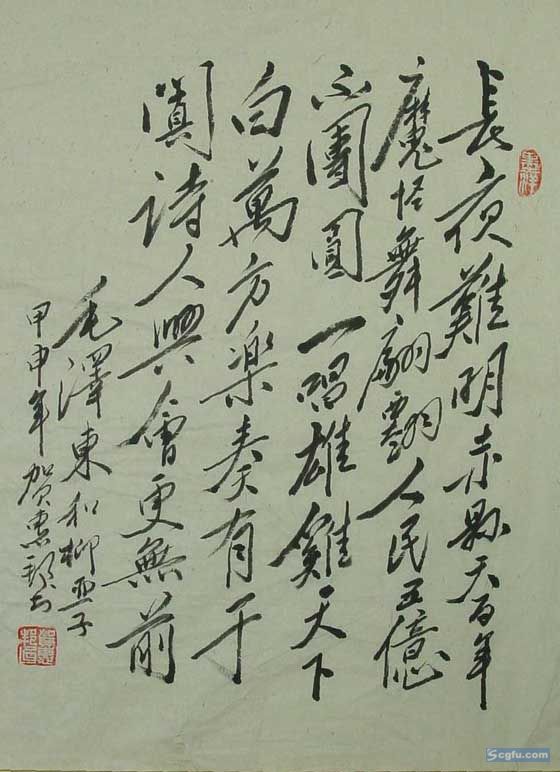 長夜難明赤縣天百年
魔怪舞翩人民五億
不團圓一唱雄雞天下
白萬方樂奏有于
闐詩人興會更無前
毛澤東和柳亞子
甲申年賀惠邦书
Scgfu.com